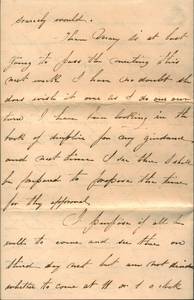 scarcely would.
Then Mary do at last
going to pass the meeting this
next week I have no doubt she
does wish it over as I do our own
turn I have been looking in the
book of discipline for any guidance
and next time I see thee I shall
be prepared to propose the time
for thy approval.
I propose if all be
well to come and see thee on
third day next but am not decided
whether to come at 11 or 1 o'clock